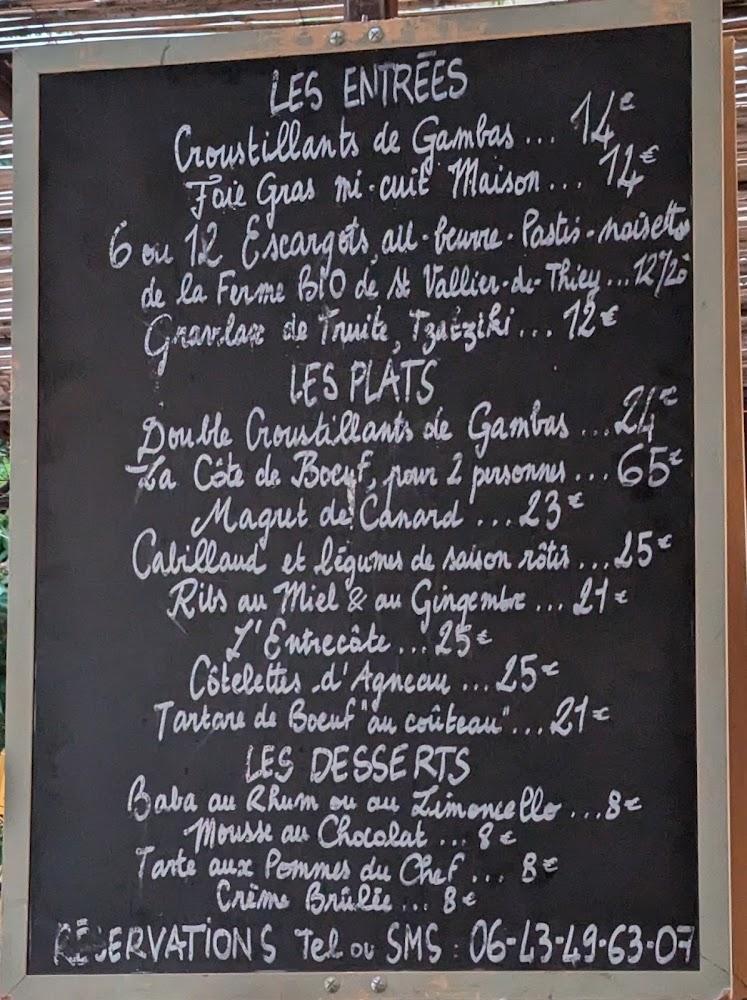 LES ENTRÉES
Croustillants de Gambas ... 14€
Foie Gras mi-cuit Maison ... 14€
6 ou 12 Escargots, ail-beurre-Pastis-noisette
de la Ferme BIO de St Vallier-de-Thiey ... 12/20
Gravlax de Truite, Tzatziki ... 12€
LES PLATS
Double Croustillants de Gambas ... 24€
La Côte de Boeuf, pour 2 personnes ... 65€
Magret de Canard ... 23€
Cabillaud et légumes de saison rôtis ... 25€
Ribs au Miel & au Gingembre ... 21€
L'Entrecôte ... 25€
Côtelettes d'Agneau ... 25€
Tartare de Boeuf "au coûteau" ... 21€
LES DESSERTS
Baba au Rhum ou au Limoncello ... 8€
Mousse au Chocolat ... 8€
Tarte aux Pommes du Chef ... 8€
Crème Brûlée ... 8€
RÉSERVATIONS Tel ou SMS : 06-43-49-63-07